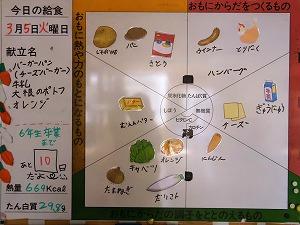 今日の給食
3月5日火曜日
献立名
バーガーパン
(チーズバーガー)
牛乳
大根のポトフ
オレンジ
6年生卒業
まで
あと
10
日
だよ
熱量 669Kcal
たん白質 29.8g
おもにからだをつくるもの
おもに熱や力のもとになるもの
じゃがいも
パン
さとう
ウインナー
とりにく
ハンバーグ
ぎゅうにゅう
チーズ
炭水化物
たん白質
しぼう
無機質
ビタミンC
カロチン
オレンジ
にんじん
キャベツ
たまねぎ
だいこん
おもにからだの調子をととのえるもの